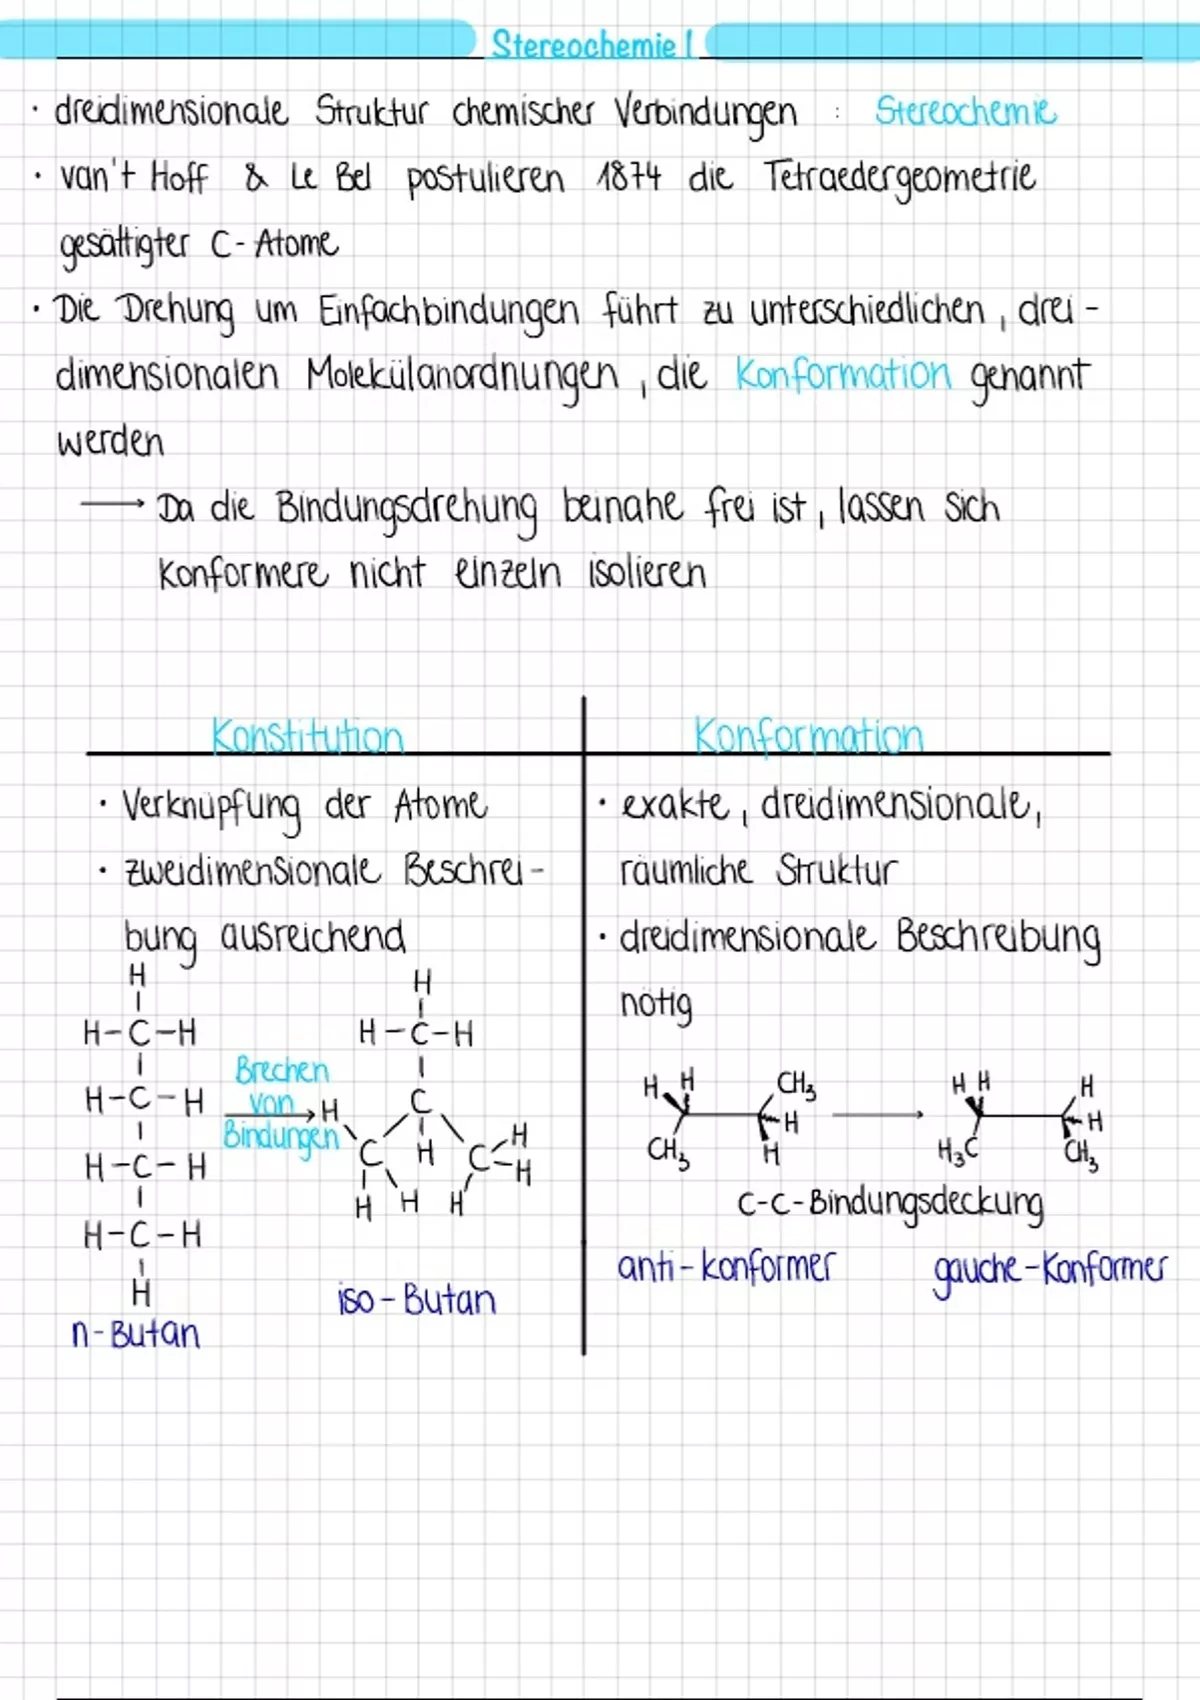 Stereochemie I
· dreidimensionale Struktur chemischer Verbindungen : Stereochemie
· van't Hoff & Le Bel postulieren 1874 die Tetraedergeometrie
gesättigter C-Atome
· Die Drehung um Einfachbindungen führt zu unterschiedlichen, drei-
dimensionalen Molekülanordnungen, die Konformation genannt
werden
→ Da die Bindungsdrehung beinahe frei ist, lassen sich
Konformere nicht einzeln isolieren
Konstitution
· Verknüpfung der Atome
· zweidimensionale Beschrei-
bung ausreichend
H
H-C-H
H-C-H
H-C-H
H-C-H
H
n-Butan
Brechen
von
Bindungen
H
H-C-H
C
H C H C H
H
H H H
iso-Butan
Konformation
· exakte, dreidimensionale,
räumliche Struktur
· dreidimensionale Beschreibung
nötig
H H CH3
H
CH3 H
H H H
H
H3C CH3
C-C-Bindungsdeckung
anti-konformer
gauche-Konformer